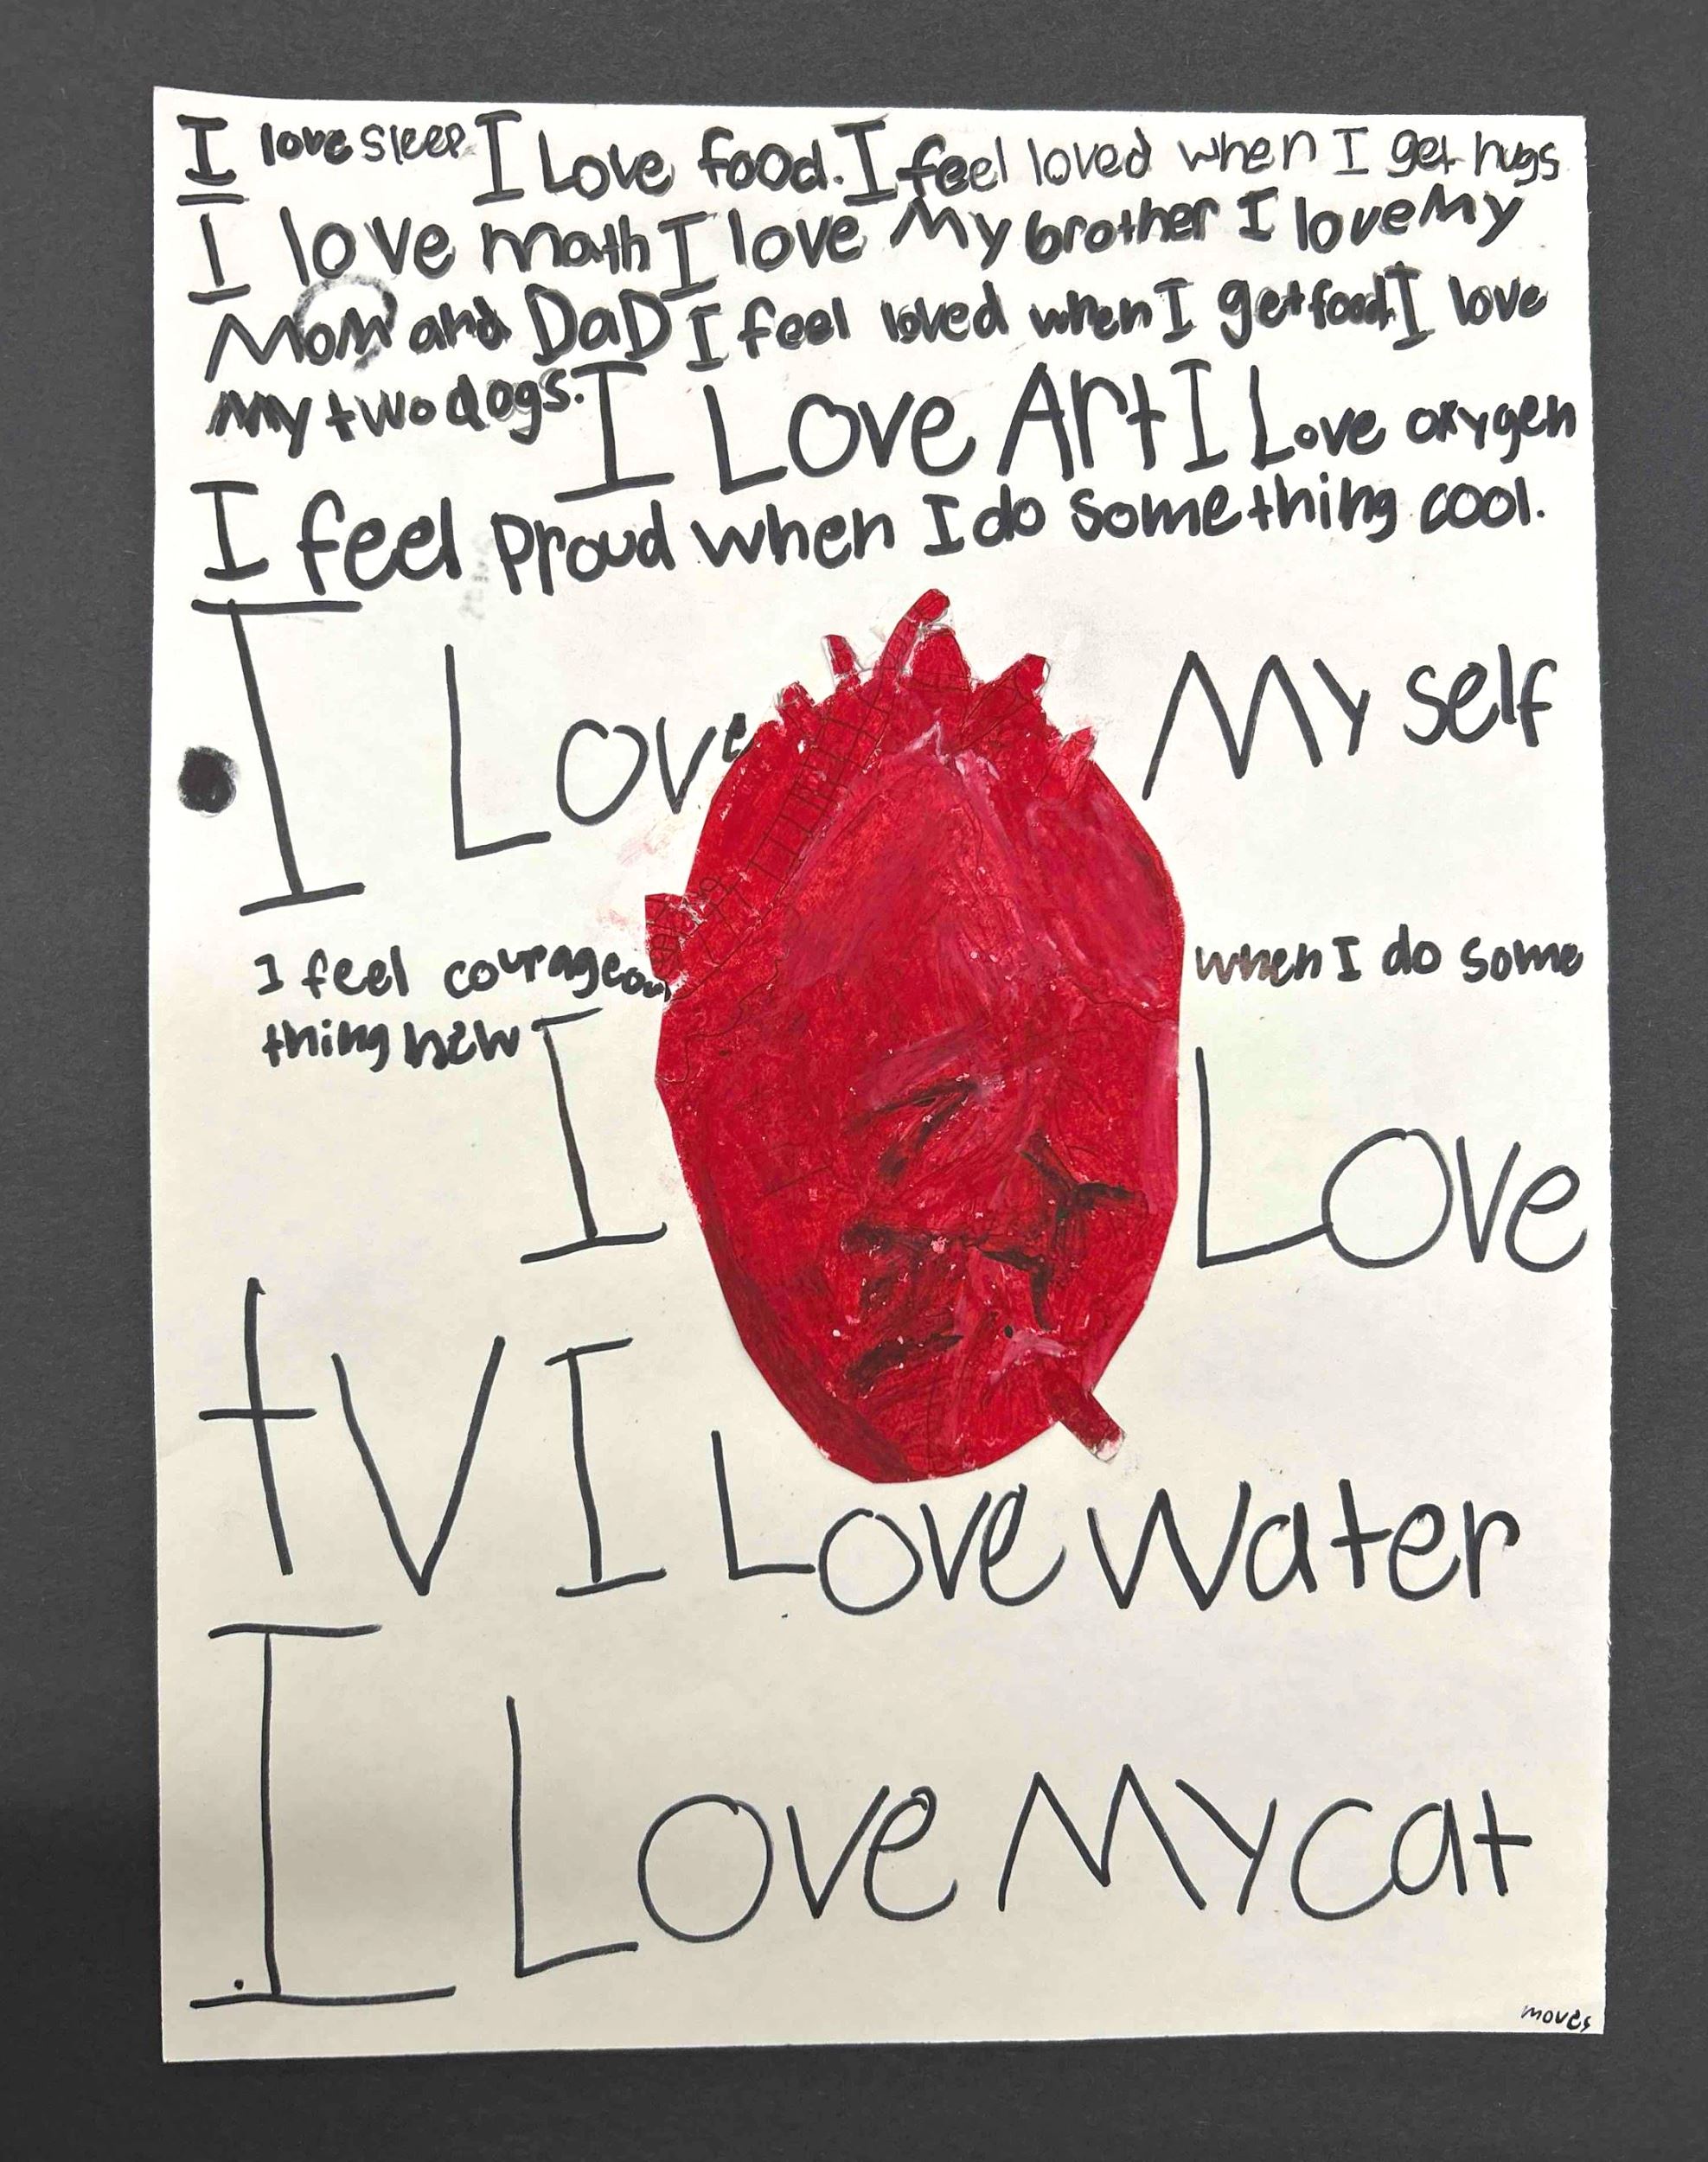 I love sleep I Love food. I feel loved when I get hugs
I love math I love My brother I love My
Mom and DaD I feel loved when I get food. I love
My two dogs. I Love Art I Love oxygen
I feel proud when I do something cool.
I Love My self
I feel courageou when I do some
thing new
I Love
tv I Love Water
I Love My cat
moves